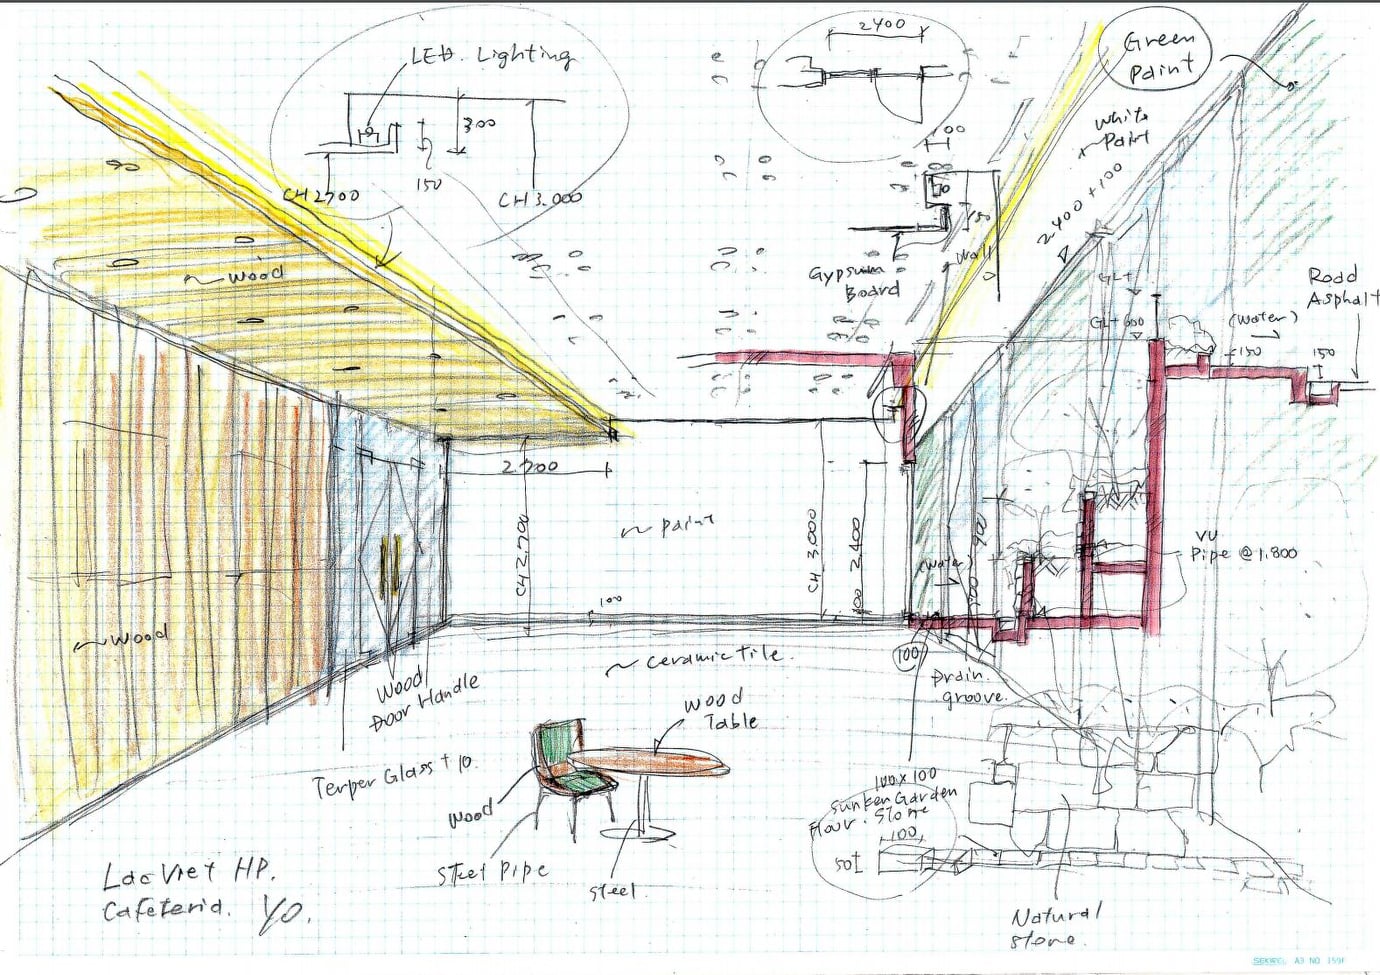 LED. Lighting
300
150
CH 2700
CH 3.000
2400
Green
Paint
White
Paint
2400+100
100
150
Wall
Gypsum
Board
GL+
GL+600
Road
Asphalt
(Water)
-150
150
wood
2.700
CH 2.700
paint
CH 3,000
2.400
100
100
900
(Water)
VU
Pipe @1.800
wood
ceramic tile.
(100)
Drain
groove.
Wood
Door Handle
Wood
Table
Terper Glass t 10.
Wood
Steel Pipe
Steel
100 x 100
Sunken Garden
Floor. Stone
100
50t
Natural
Stone.
Lac Viet HP.
Cafeteria. YO.
SEKWEL A3 NO 159F